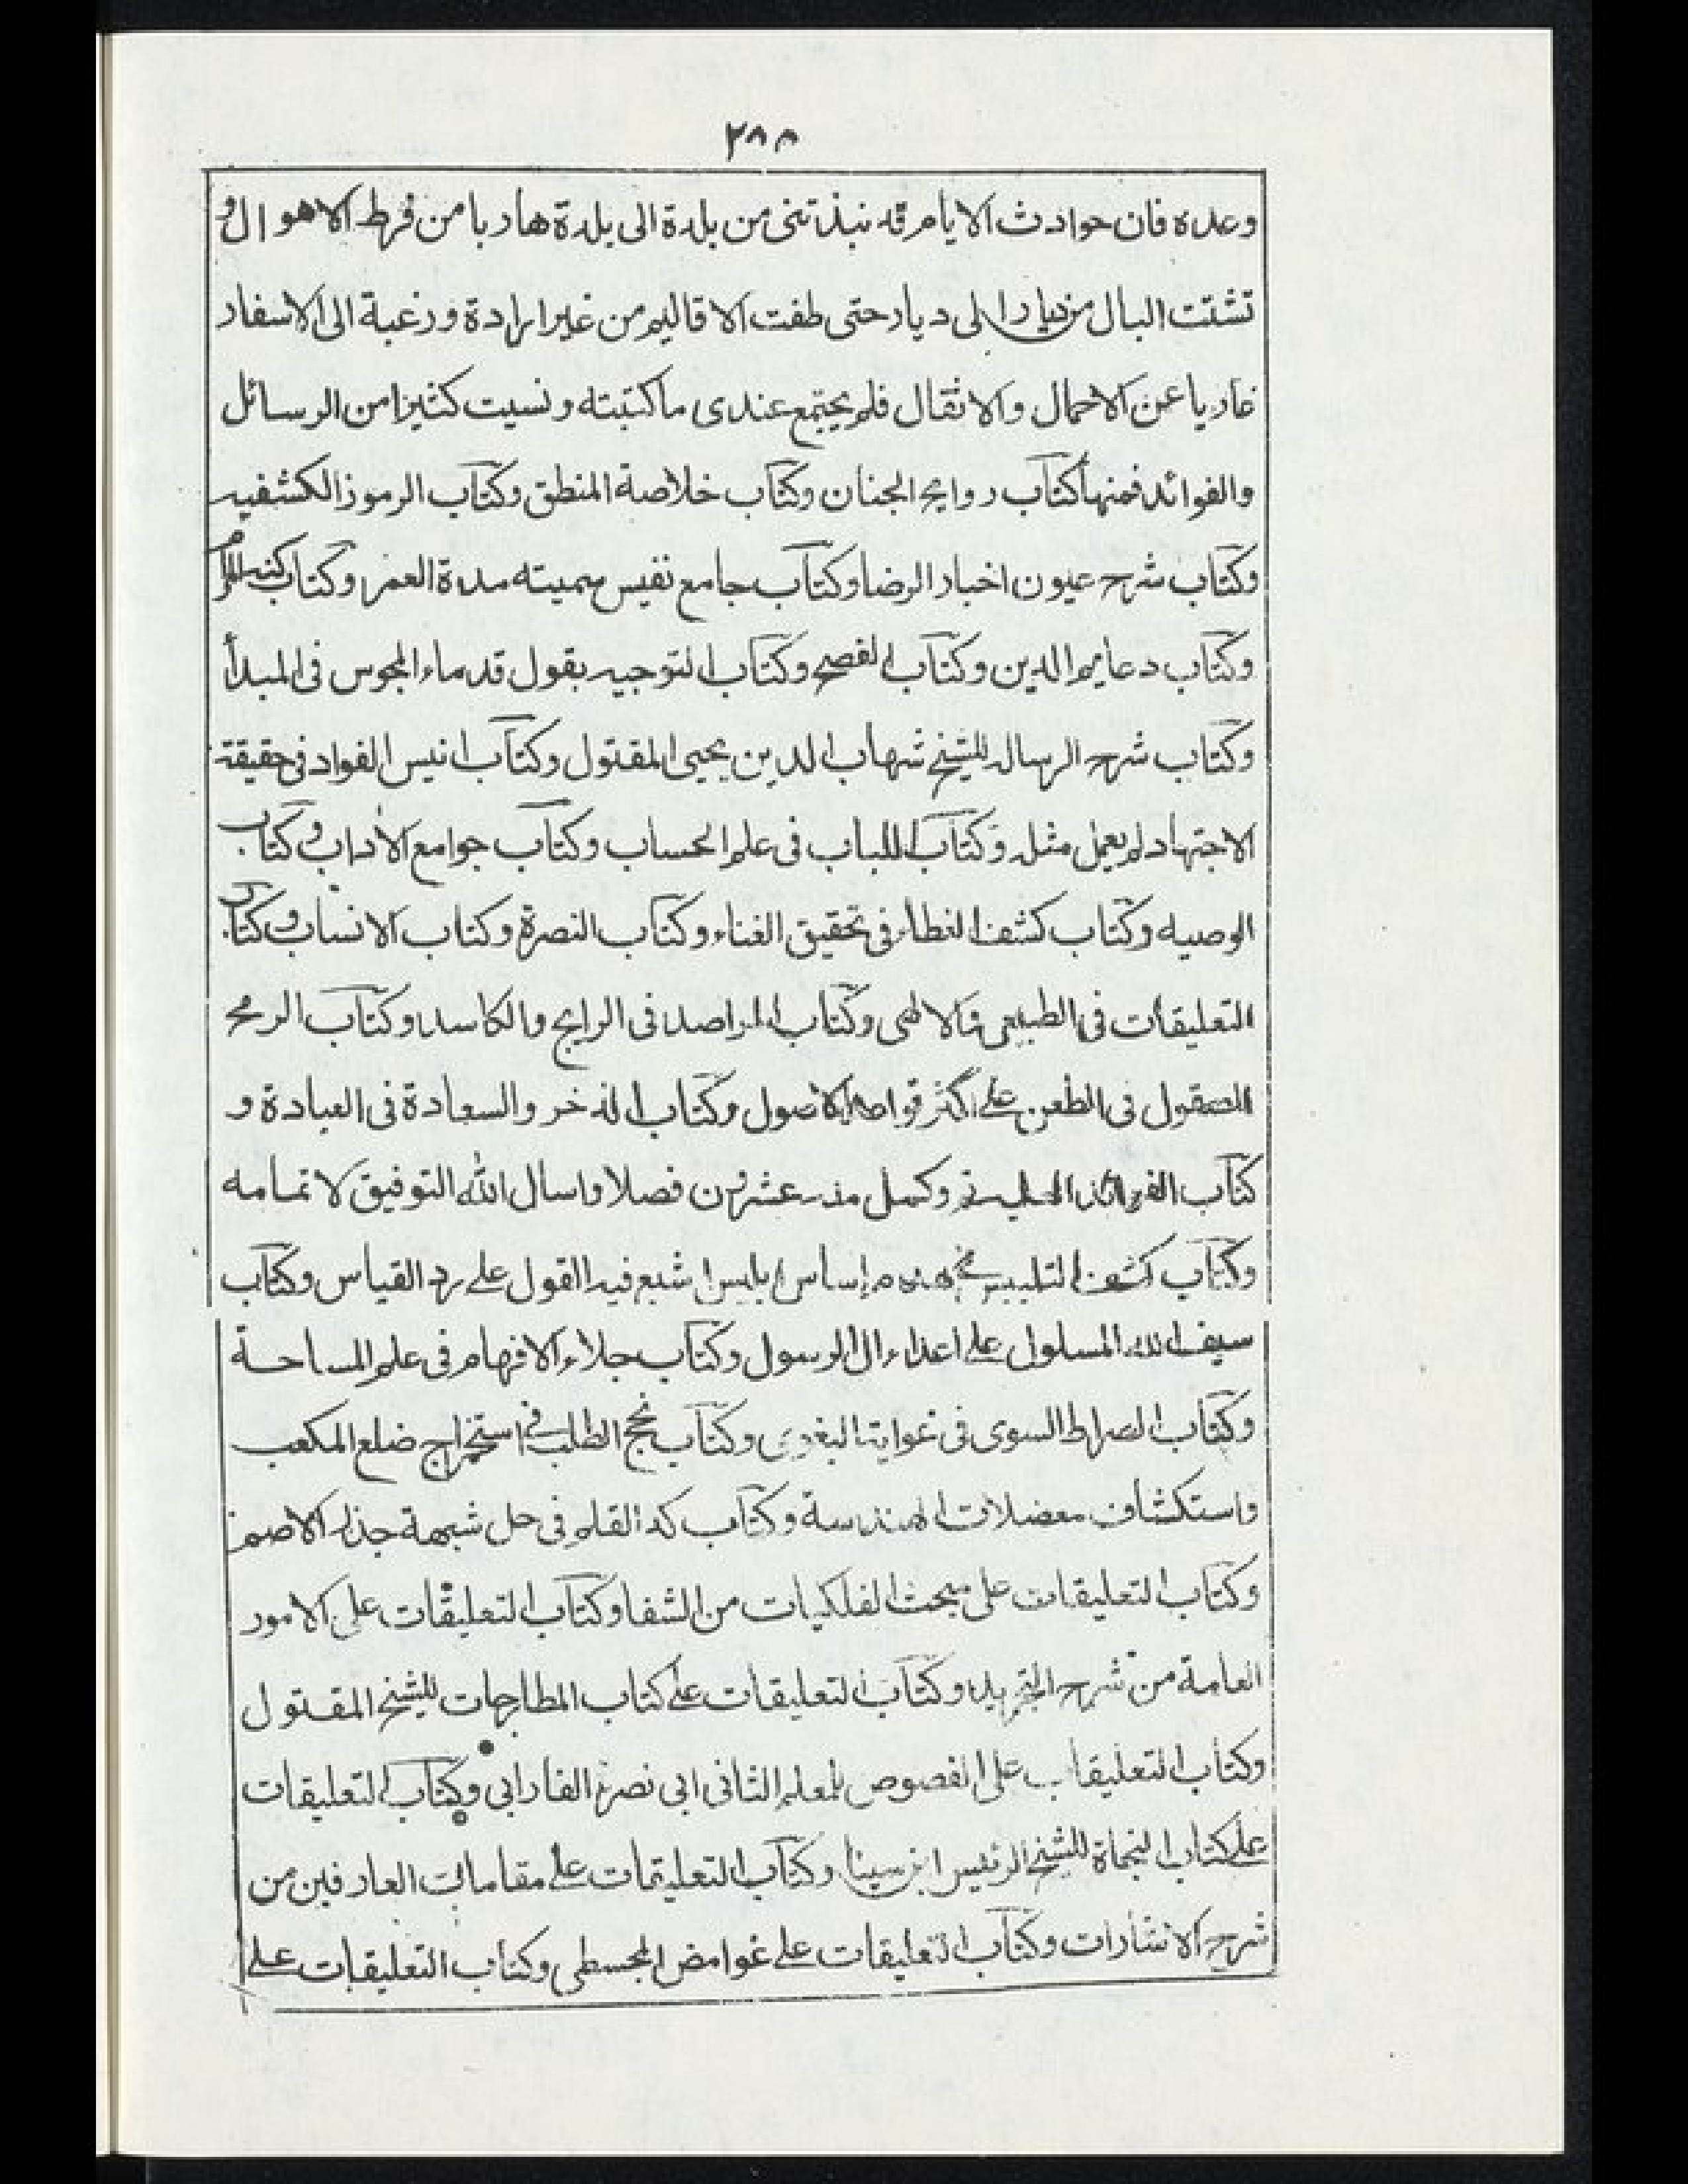 ٢٨٨
وعده فان حوادث الايام قد نبذتنى من بلدة الى بلدة هاربا من فرط الاهوال و
تشتت البال من ديار الى ديار حتى طفت الاقاليم من غير ارادة ورغبة الى الاسفار
عاريا عن الاحمال والاثقال فلم يجتمع عندى ما كتبته ونسيت كثيرا من الرسائل
والفوائد فمنها كتاب روايح الجنان وكتاب خلاصة المنطق وكتاب الرموز الكشفيه
وكتاب شرح عيون اخبار الرضا وكتاب جامع نفيس سميته مدة العمر وكتاب كنه
وكتاب دعايم الدين وكتاب الفصح وكتاب التوجيه بقول قدماء المجوس فى المبدأ
وكتاب شرح الرساله للشيخ شهاب الدين يحيى المقتول وكتاب انيس الفواد فى حقيقة
الاجتهاد لم يعمل مثله وكتاب اللباب فى علم الحساب وكتاب جوامع الاداب وكتاب
الوصيه وكتاب كشف الغطاء فى تحقيق الغناء وكتاب النصرة وكتاب الانساب وكتاب
التعليقات فى الطبيعى والالهى وكتاب المراصد فى الرايج والكاسد وكتاب الرمح
المصقول فى الطعن على اكثر قواعد الاصول وكتاب الذخر والسعادة فى العبادة و
كتاب الفوائد وكمل منه عشرون فصلا واسال الله التوفيق لاتمامه
وكتاب كشف التلبيس فى هدم اساس ابليس اشبع فيه القول على رد القياس وكتاب
سيف الله المسلول على اعداء ال الرسول وكتاب جلاء الافهام فى علم المساحة
وكتاب الصراط السوى فى غواية البغوى وكتاب نجح الطلب فى استخراج ضلع المكعب
واستكشاف معضلات الهندسة وكتاب كد القلم فى حل شبهة جذر الاصم
وكتاب التعليقات على مبحث الفلكيات من الشفا وكتاب التعليقات على الامور
العامة من شرح التجريد وكتاب التعليقات على كتاب المطارحات للشيخ المقتول
وكتاب التعليقات على الفصوص للمعلم الثانى ابى نصر الفارابى وكتاب التعليقات
على كتاب النجاة للشيخ الرئيس ابن سينا وكتاب التعليقات على مقامات العارفين من
شرح الاشارات وكتاب التعليقات على غوامض المجسطى وكتاب التعليقات على